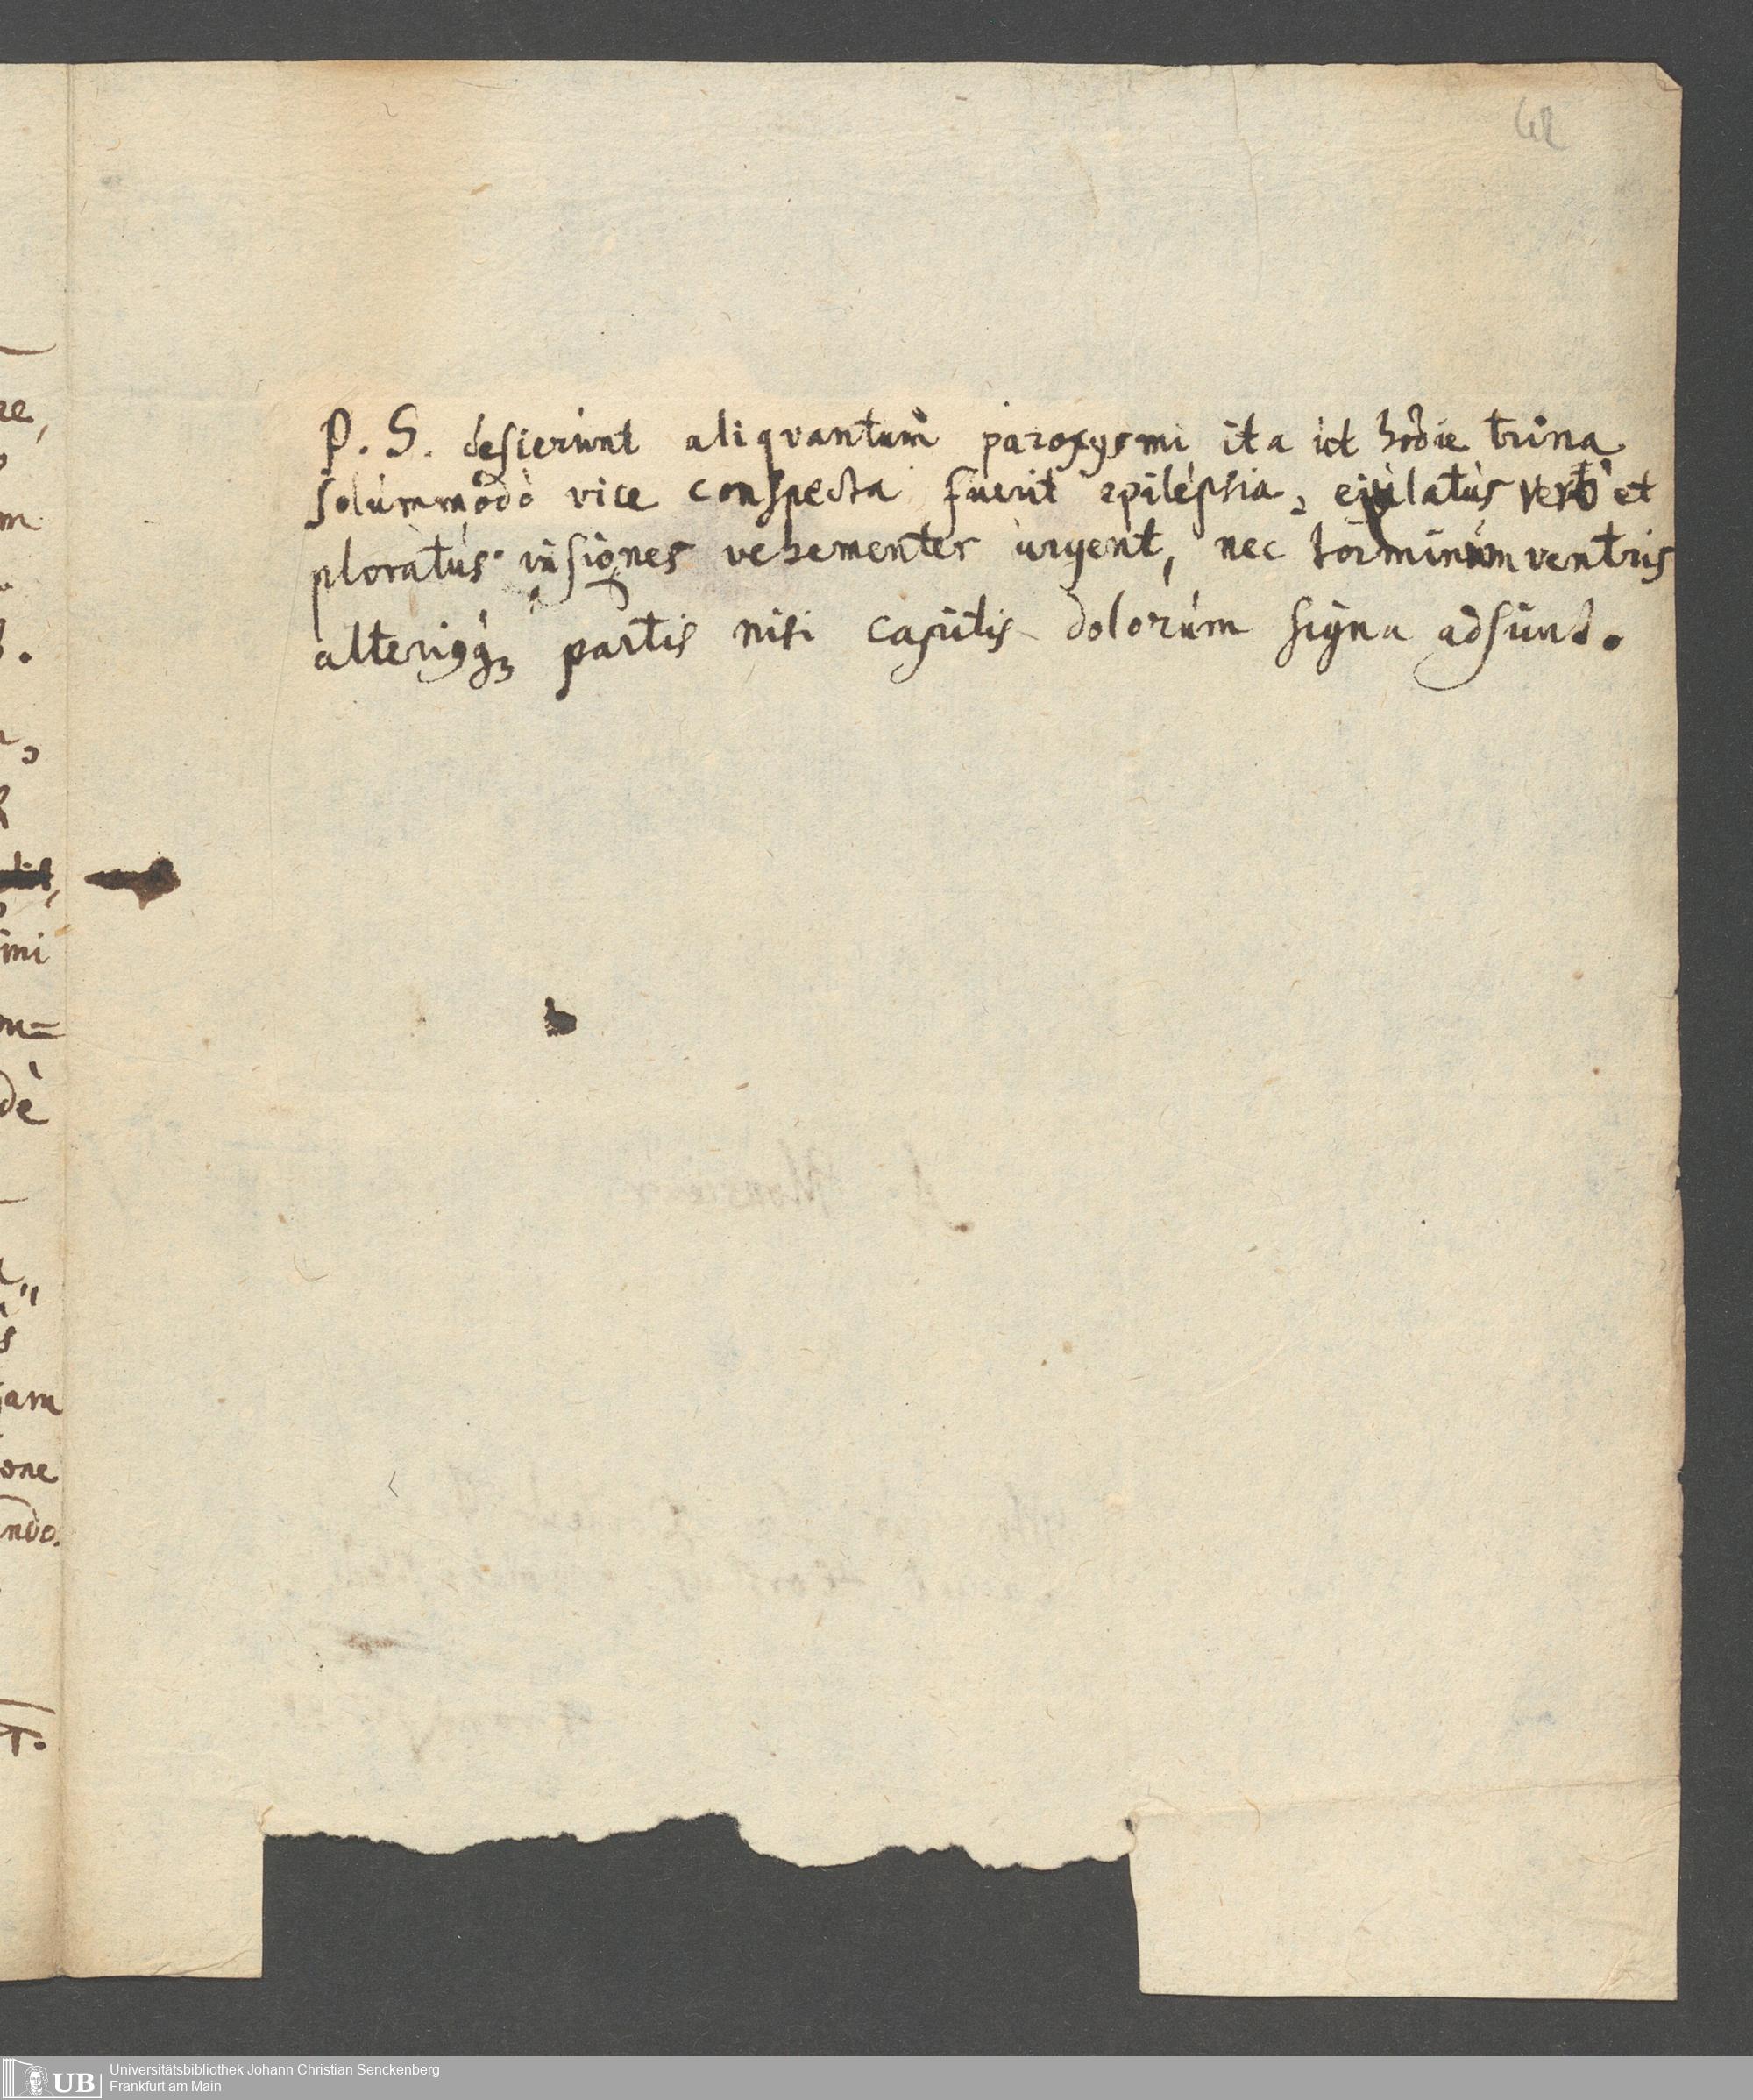 42
P. S. desierunt aliqvantum paroxysmi ita ut hodie trina
solummodò vice conspecta fuerit epilepsia, ejulatus verò et
ploratus insignes vehementer urgent, nec torminum ventris
alteriusq₃ partis nisi capitis dolorum signa adsunt.
re,
m
mi
dè
iam
ione
ndo.
A Monsieur
UB
Universitätsbibliothek Johann Christian Senckenberg
Frankfurt am Main